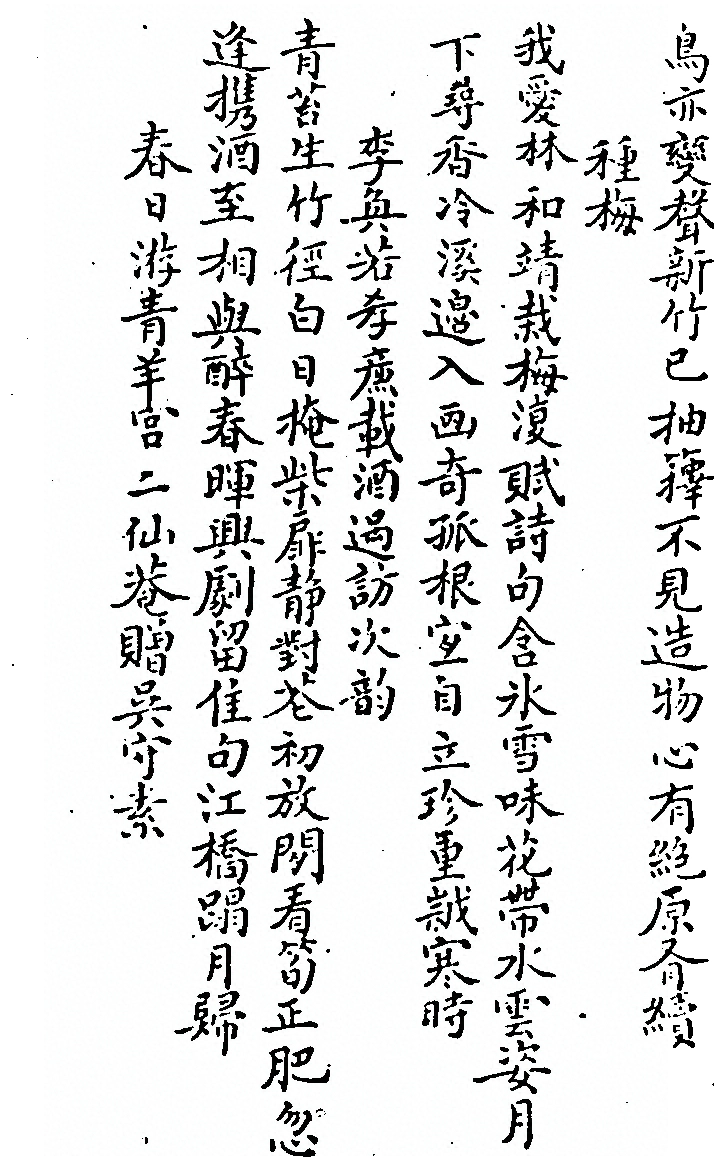 鳥亦變聲新竹已抽籜不見造物心有絕原脊續
種梅
我愛林和靖栽梅復賦詩句含氷雪味花帶水雲姿月
下尋香冷溪邊入画奇孤根寍自立珍重歳寒時
李奐若孝廉載酒過訪次韵
青苔生竹徑白日掩柴扉静對花初放閒看筍正肥忽
逢携酒至相與醉春暉興劇留佳句江橋蹋月歸
春日游青羊宮二仙菴贈吳守素